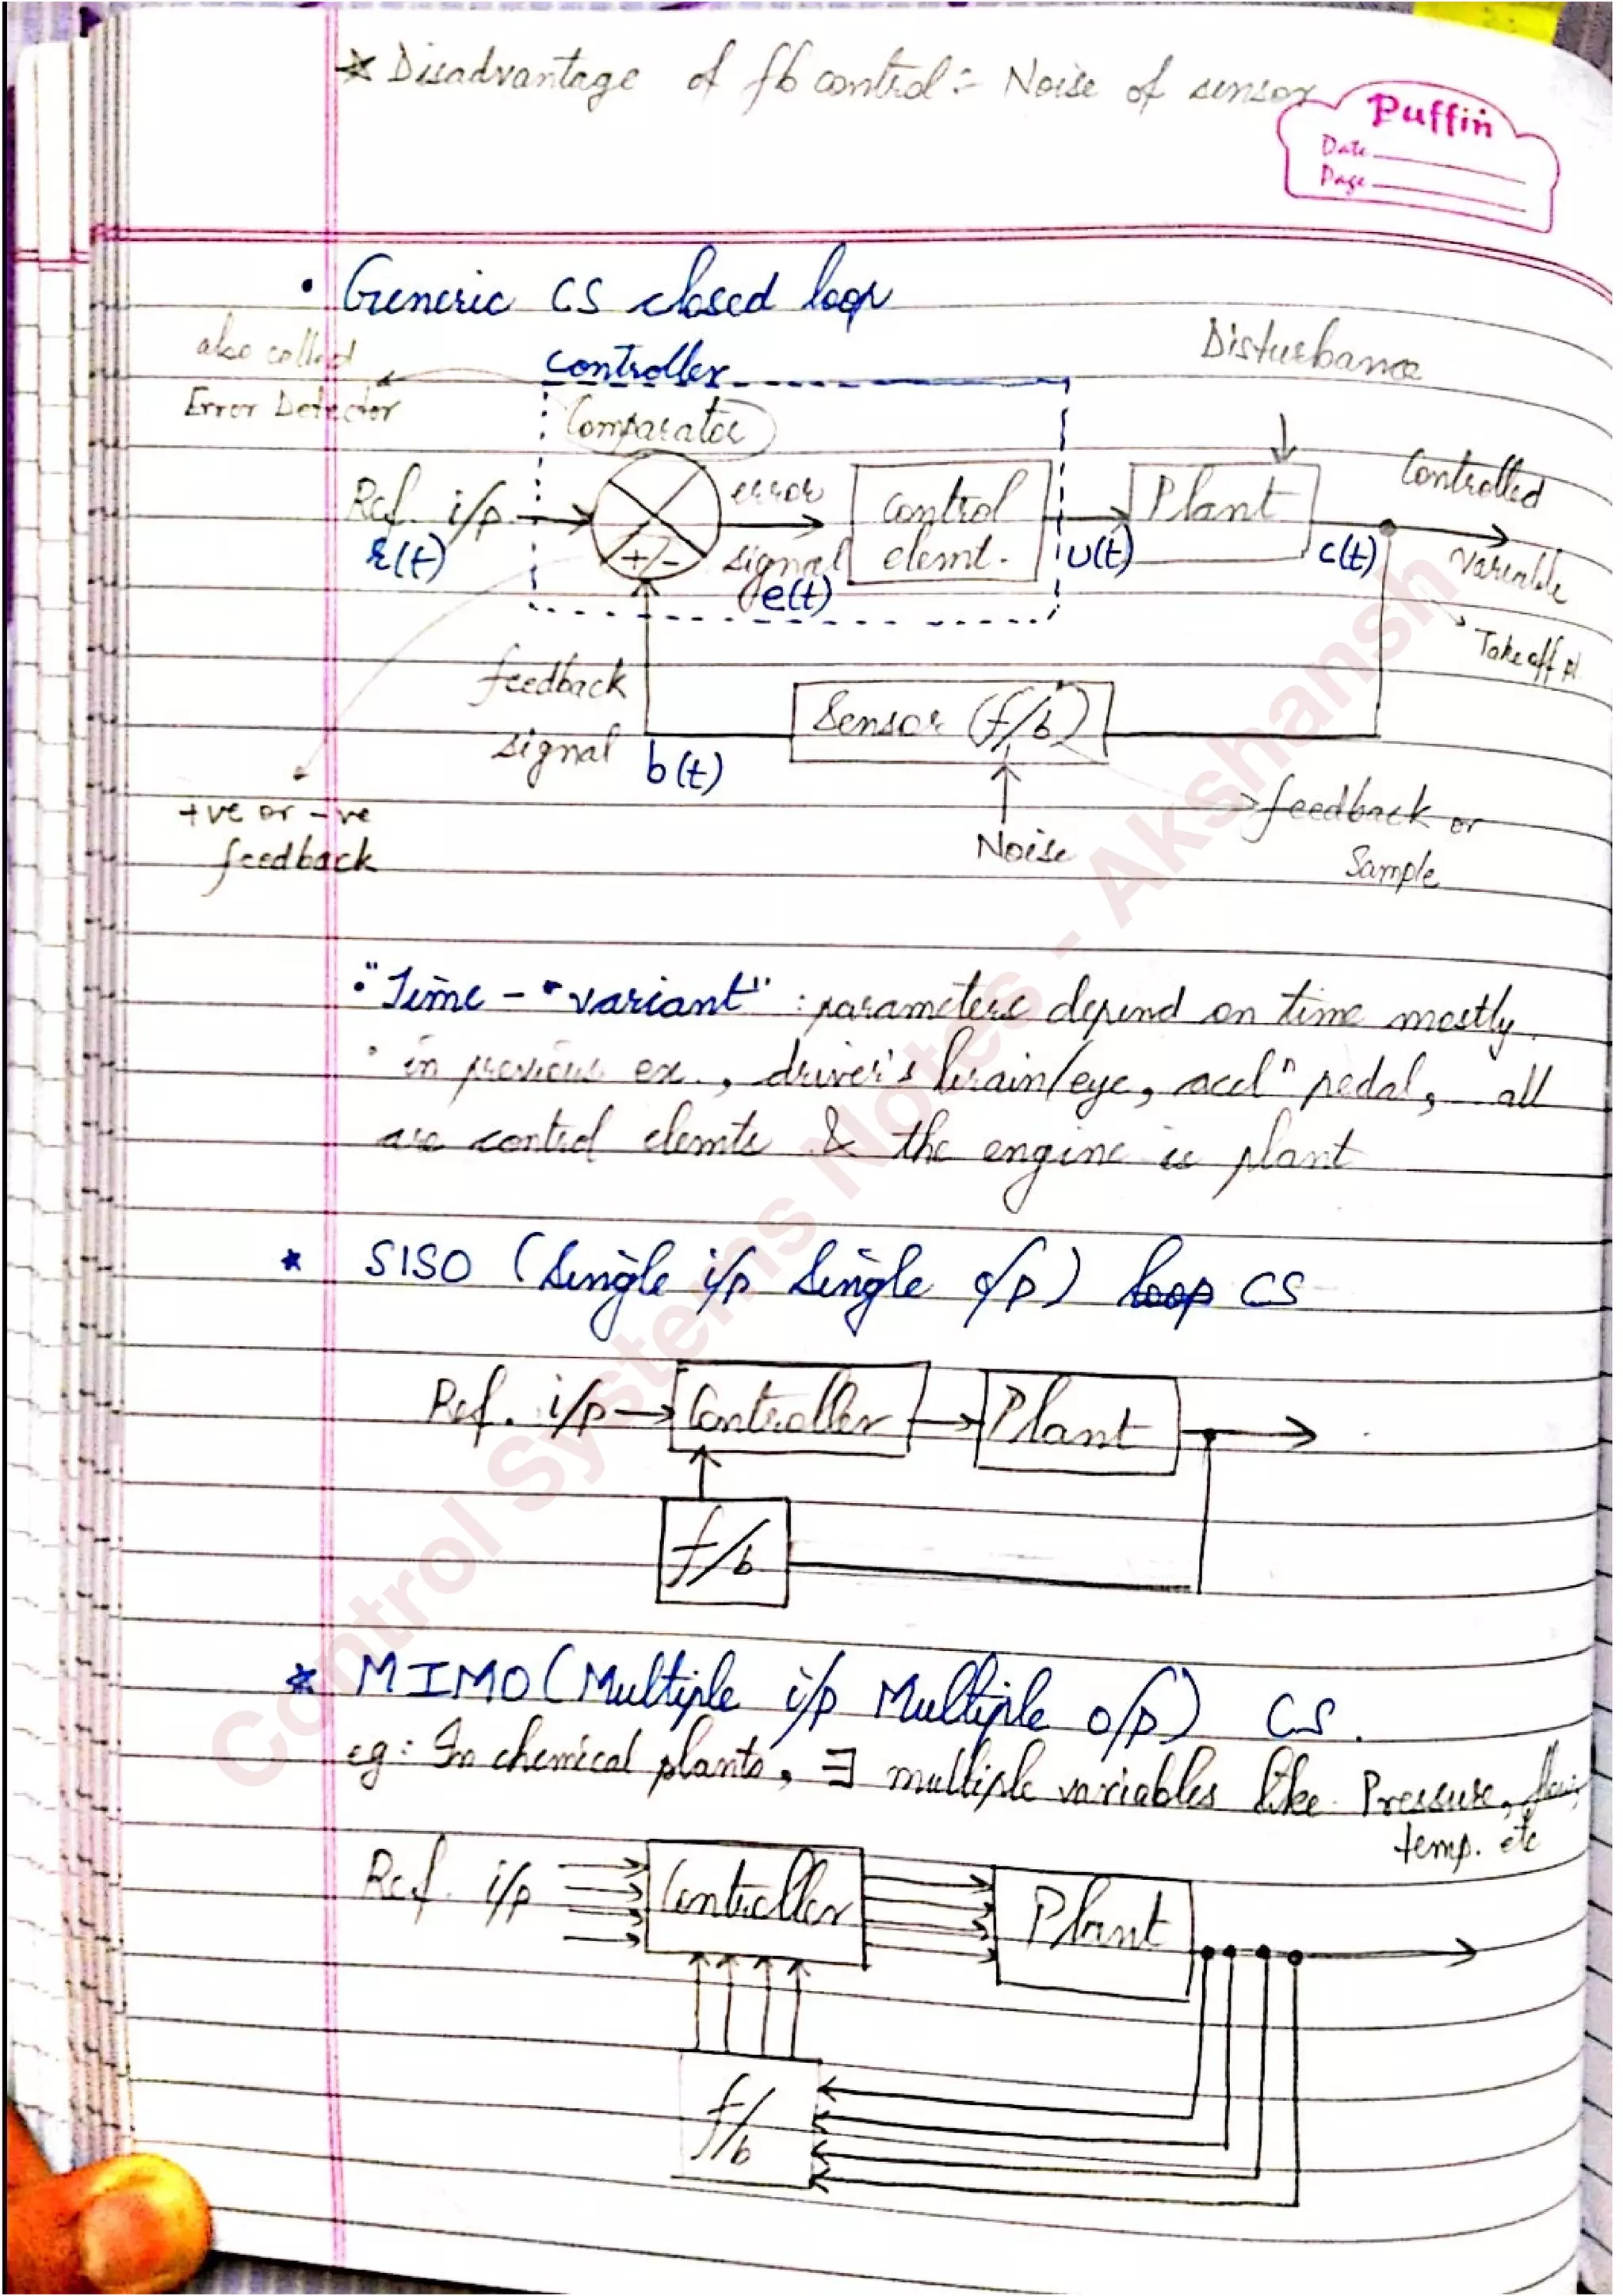 * Disadvantage of fb control :- Noise of sensor
Puffin
Date
Page
• Generic CS closed loop
also called
Error Detector
Controller
Comparator
Disturbance
Ref. i/p
r(t)
+/-
error
signal
e(t)
control
elemt.
u(t)
Plant
c(t)
Controlled
variable
Take off pt
feedback
signal
b(t)
Sensor (f/b)
Noise
+ve or -ve
feedback
feedback or
Sample
• "Time - "variant" : parameters depend on time mostly.
• in previous ex., driver's brain/eye, accl^n pedal, all
are control elemts & the engine is plant
* SISO (Single i/p Single o/p) loop CS
Ref. i/p
Controller
Plant
f/b
* MIMO (Multiple i/p Multiple o/p) CS.
eg: In chemical plants, ∃ multiple variables like Pressure, flow,
temp. etc
Ref. i/p
Controller
Plant
f/b
Control Systems Notes - Akshansh